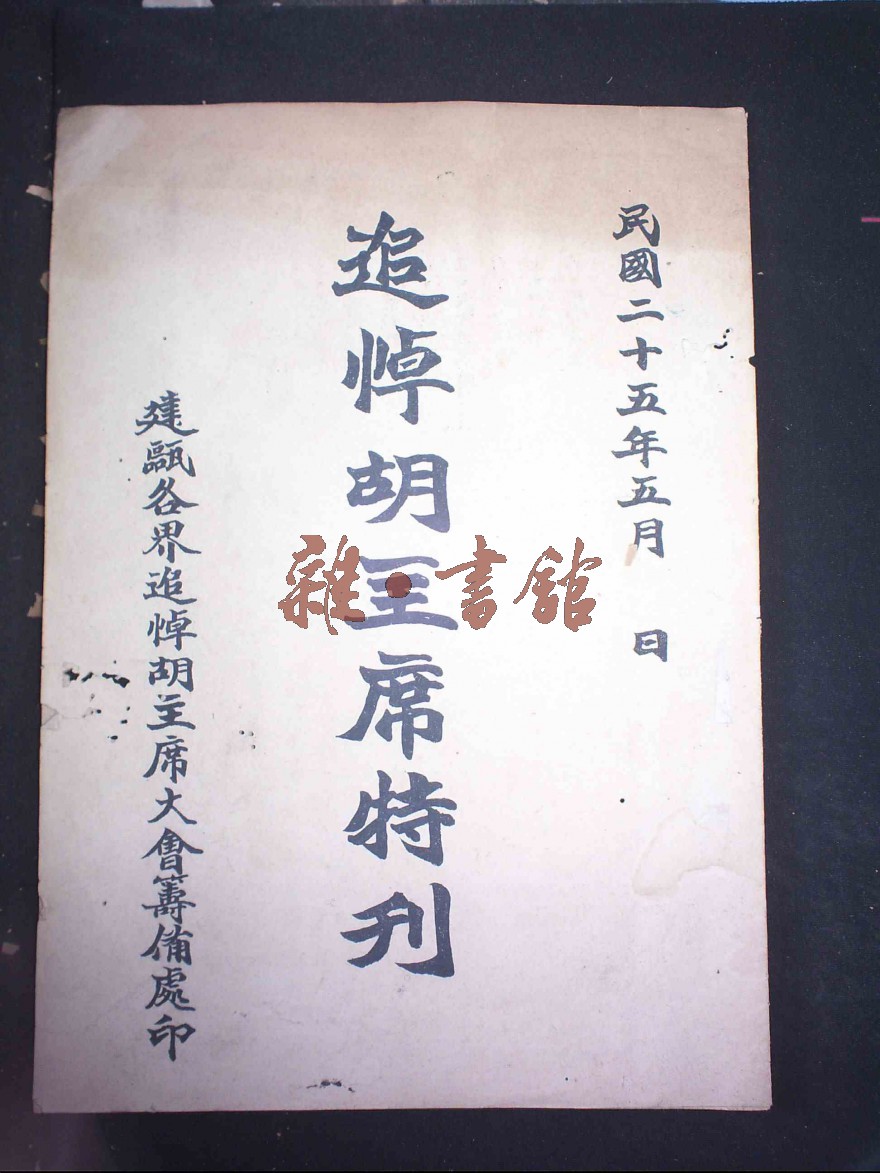 民國二十五年五月 日
追悼胡主席特刊
建甌各界追悼胡主席大會籌備處印
雜·書館